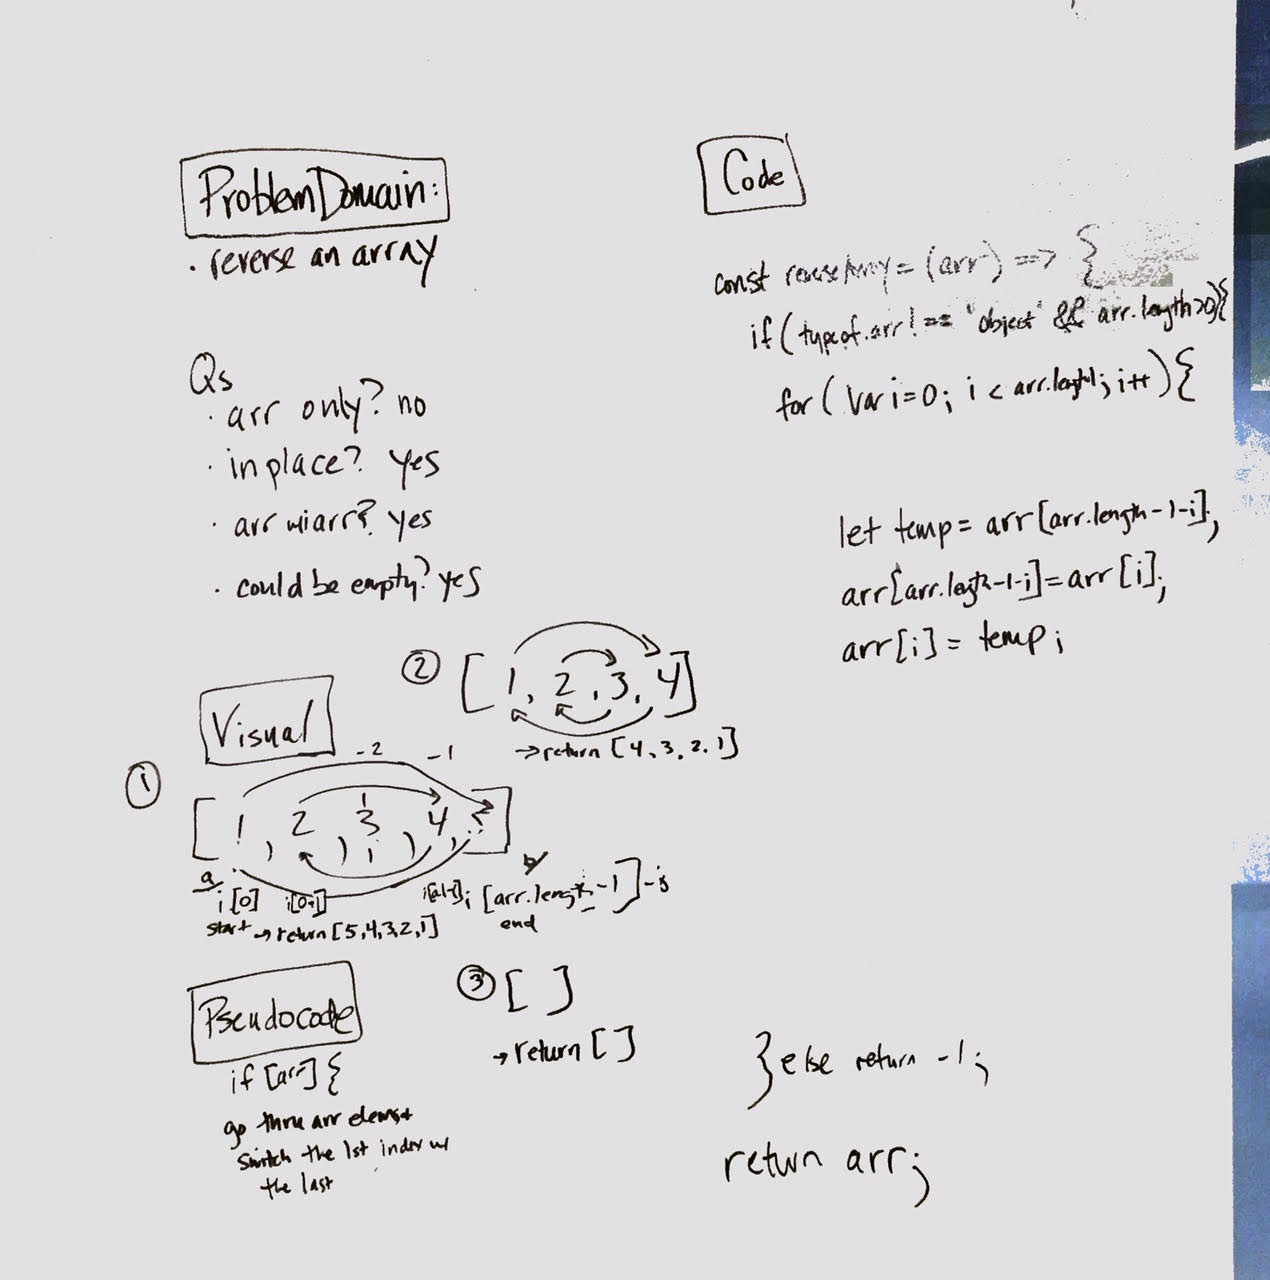 Problem Domain:
· reverse an array
Qs
· arr only? no
· in place? yes
· arr w/arr? yes
· could be empty? yes
Visual
①
-2 -1
[1, 2, 3, 4, 5]
a b
i[0] i[0+1] i [arr.length-1]-i
start end
→ return [5,4,3,2,1]
②
[1, 2, 3, 4]
→ return [4,3,2,1]
③ [ ]
→ return [ ]
Pseudocode
if [arr] {
go thru arr elems +
switch the 1st index w/
the last
Code
const reverseArray = (arr) => {
if (typeof.arr !== 'object' && arr.length>0){
for (var i=0; i < arr.length; i++) {
let temp = arr[arr.length-1-i];
arr[arr.length-1-i]=arr[i];
arr[i] = temp;
} else return -1;
return arr;